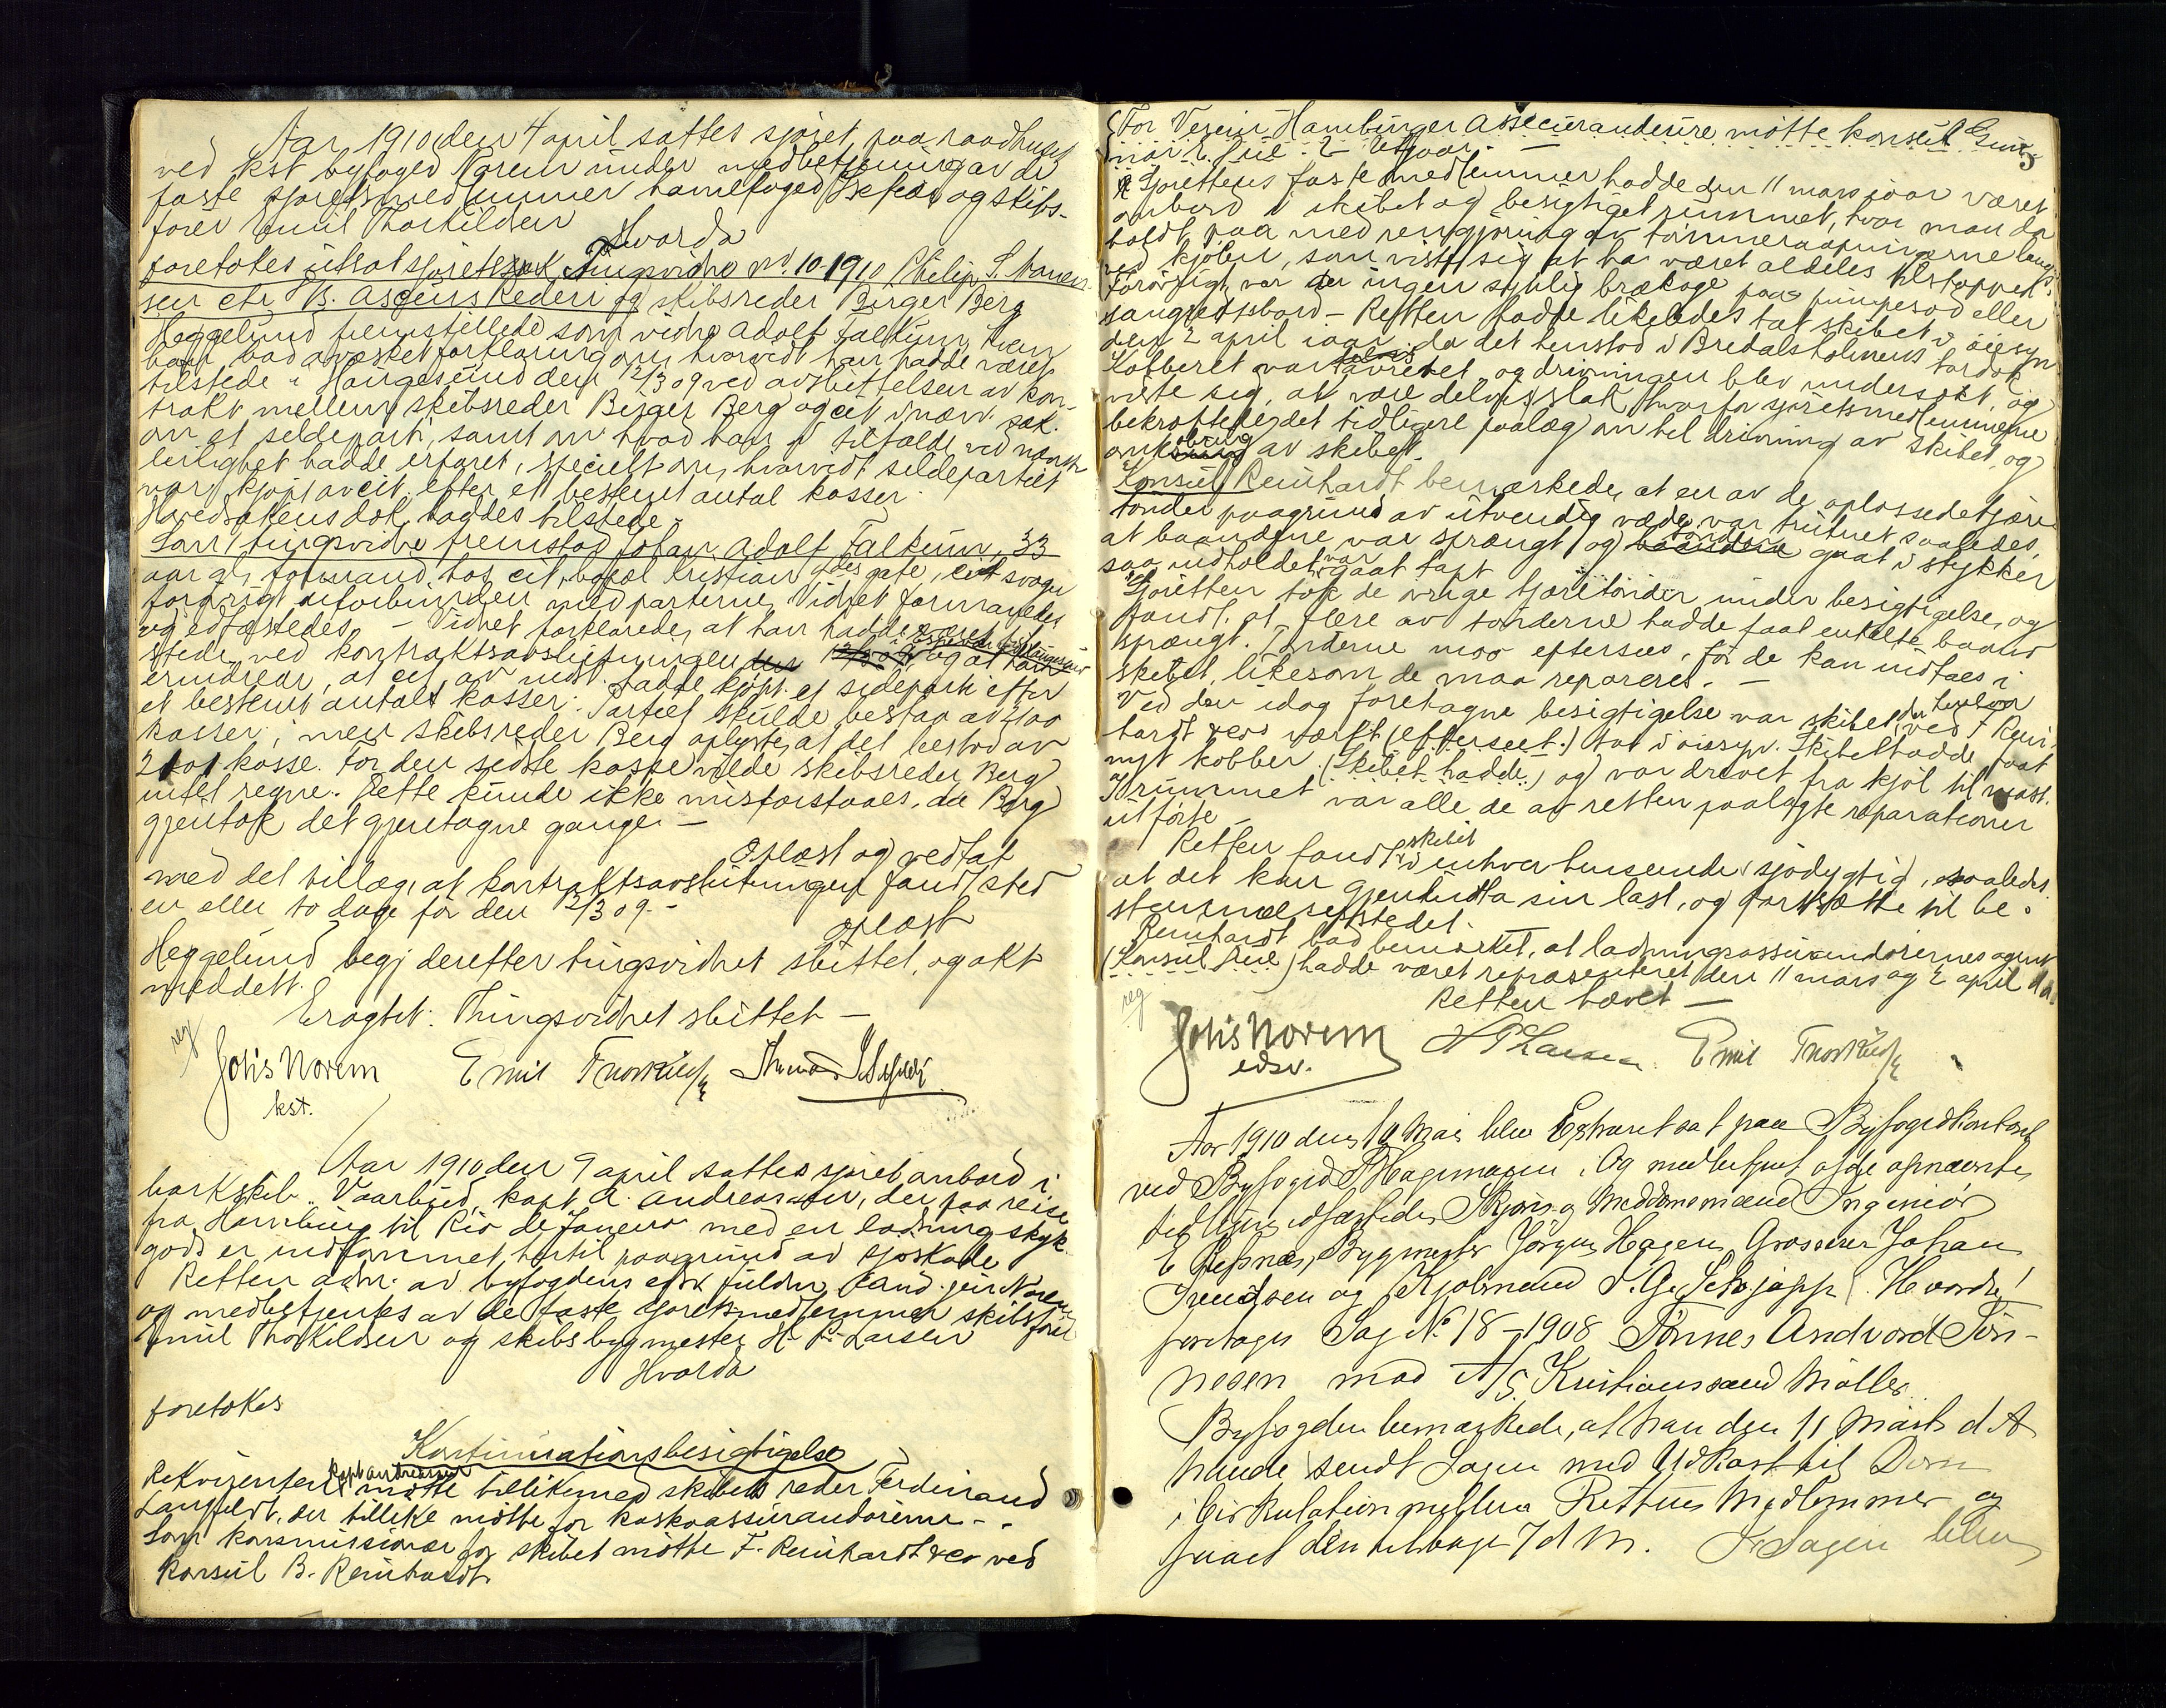 Aar 1910 den 4 april sattes sjøret paa raadhuset
ved kst byfoged Norem under medbetjening av de
faste sjøretsmedlemmer havnefoged Isefiær og skibs-
fører Emil Thorkildsen
Hvorda
foretokes utsat sjøretssak Tingsvidne no. 10-1910 Philip S. Hansen
sen ctr B. Aspeus Rederi og skibsreder Birger Berg
Heggelund fremstillede som vidne Adolf Falkum. Han
bad avæsket forklaring om, hvorvidt han hadde været
tilstede i Haugesund den 12/3 09 ved avsluttelsen av kon-
trakt mellem skibsreder Birger Berg og cit i nærv. sak.
om et sildeparti, samt om hvad han i tilfælde ved nævnte
leilighet hadde erfaret, specielt om, hvorvidt sildepartiet
var kjøpt av cit. efter et bestemt antal kasser.
Hovedsakens dok. hades tilstede.
Som tingsvidne fremstod Johan Adolf Falkum, 33
aar gl., formand hos cit, bopæl Kristian 4des gate, cits svoger
forøvrigt uforbunden med parterne. Vidnet formanedes
og edfæstedes. – Vidnet forklarede, at han hadde været til-
stede ved kontraktsavslutningen i Haugesund
erindrer, at cit av indst. hadde kjøpt et sildeparti efter
et bestemt antal kasser. Partiet skulde bestaa av 2100
kasser, men skibsreder Berg oplyste, at det bestod av
2101 kasse. For den sidste kasse vilde skibsreder Berg
intet regne. Dette kunde ikke misforstaaes, da Berg
gjentok det gjentagne ganger –
Oplæst og vedtat
med det tillæg, at kontraktsavslutningen fandt sted
en eller to dage før den 12/3 09. –
oplæst
Heggelund begj derefter tingsvidnet sluttet, og akt
meddelt.
Eragtet: Thingsvidnet sluttet –
reg
Johs Norem Emil Thorkildsen
kst.
Aar 1910 den 9 april sattes sjøret ombord i
barkskib "Vaarbud", kapt A. Andreassen, der paa reise
fra Hamburg til Rio de Janeiro med en ladning styk
gods er indkommet hertil paagrund av sjøskade
Retten adm. av byfogdens edsv fuldm, cand. jur Norem
og medbetjentes av de faste sjøretsmedlemmer skibsfører
Emil Thorkildsen og skibsbygmester H. P. Larsen
Hvorda
foretokes
Kontinuationsbesigtigelse
Rekvirenten kapt Andreassen møtte tillikemed skibets reder Ferdinand
Langfeldt, der tillike møtte for kaskoassurandørerne –
Som kommissionær for skibet møtte F. Reinhardt & co ved
konsul B. Reinhardt.
3
(For Verein Hamburger Assecurandeure møtte konsul Gun-
nar E. Jue – Utgaar. –
Sjørettens faste medlemmer hadde den 11 mars iaar været
ombord i skibet og besigtiget rummet, hvor man da
holdt paa med rengjøring av tømmeraapningerne langs
ved kjølen, som viste sig at ha været aldeles tilstoppet.
Forøvrigt var der ingen synlig brækage paa pumpesod eller
sangredtsbord – Retten hadde likeledes tat skibet i øiesyn
den 2 april iaar, da det henstod i Bredalsholmens tørdok.
Kobberet var delvis avrevet, og drivningen blev undersøkt, og
viste seg, at være delvis slak, hvorfor sjøretsmedlemmerne
bekræftede det tidligere paalæg om hel drivning av skibet, og
omkobring av skibet.
Konsul Reinhardt bemærkede, at en av de oplossede tjære-
tønder paagrund av utvendig væde var trutnet saaledes,
at baandene var sprængt og tønden gaat i stykker
saa indholdet var gaat tapt
Sjøretten tok de øvrige tjæretønder under besigtigelse, og
fandt, at flere av tønderne hadde faat enkelte baand
sprængt. Tønderne maa eftersees, før de kan indtaes i
skibet, likesom de maa repareres. –
Ved den idag foretagne besigtigelse var skibet, der henlaa ved F Rein-
hardt & cos værft (efterseet) tat i øiesyn. Skibet hadde faat
nyt kobber (Skibet hadde) og var drevet fra kjøl til mast.
og i rummet var alle de av retten paalagte reparationer
utførte –
Retten fandt skibet i enhver henseende sjødygtig, saaledes
at det kan gjenindta sin last, og fortsætte til be-
stemmelsesstedet. –
Reinhardt bad bemærket, at ladningsassurandørernes agent
(Konsul Jue) hadde været repræsenteret den 11 mars og 2 april d.a.
Retten hævet –
reg
Johs Norem H P Larsen Emil Thorkildsen
edsv.
Aar 1910 den 10 Mai blev Extraret sat paa Byfogedkontoret
ved Byfoged Hagemann, og medbetjent af de opnævnte
tidligere edfæstede Skjøns og Meddomsmænd Ingeniør
E Refsnæs, Bygmester Jørgen Hagen, Grosserer Johan
Svendsen og Kjøbmand S. G. Schjapp. Hvorda!
foretages Sag No 18–1908 Tønnes Andvord Tøn-
nesen mod A/S Kristianssand Møller.
Byfogden bemærkede, at han den 11 Marts d A
havde sendt Sagen med Udkast til Dom
i Cirkulation mellem Rettens Medlemmer og
faaet den tilbage 7 d M. Sagen blev